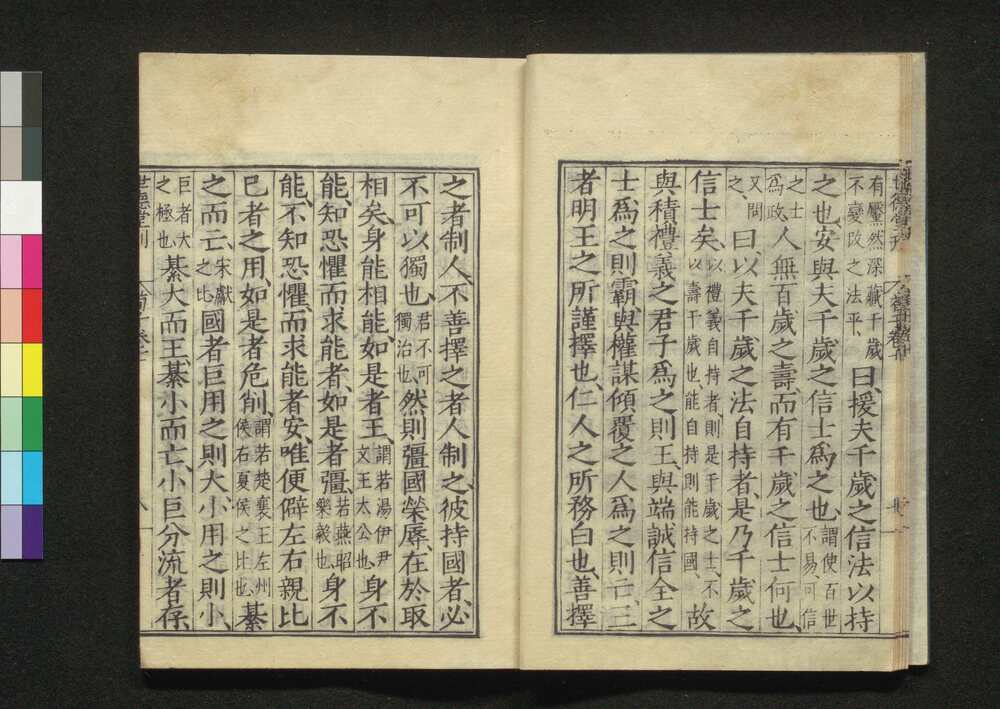 有黶然深藏千歲不變改之法乎、曰、援夫千歲之信法以持
之也、安與夫千歲之信士爲之也、謂使百世不易、可信
之士爲政、人無百歲之壽、而有千歲之信士何也、
又問之、曰、以夫千歲之法自持者、是乃千歲之
信士矣、以禮義自持者、則是千歲之士、不以壽千歲也、能自持則能持國、故
與積禮義之君子爲之則王、與端誠信全之
士爲之則霸、與權謀傾覆之人爲之則亡、三
者明王之所謹擇也、仁人之所務白也、善擇
之者制人、不善擇之者人制之、彼持國者、必
不可以獨也、君不可獨治也、然則彊國榮辱、在於取
相矣、身能相能、如是者王、謂若湯伊尹文王太公也、身不
能、知恐懼而求能者、如是者彊、若燕昭樂毅也、身不
能、不知恐懼而求能者安、唯便僻左右親比
已者之用、如是者危削、謂若楚襄王左州侯右夏侯之比也、綦
之而亡、宋獻之比國者巨用之則大、小用之則小、
巨者大之極也、綦大而王、綦小而亡、小巨分流者存、
世德堂刊